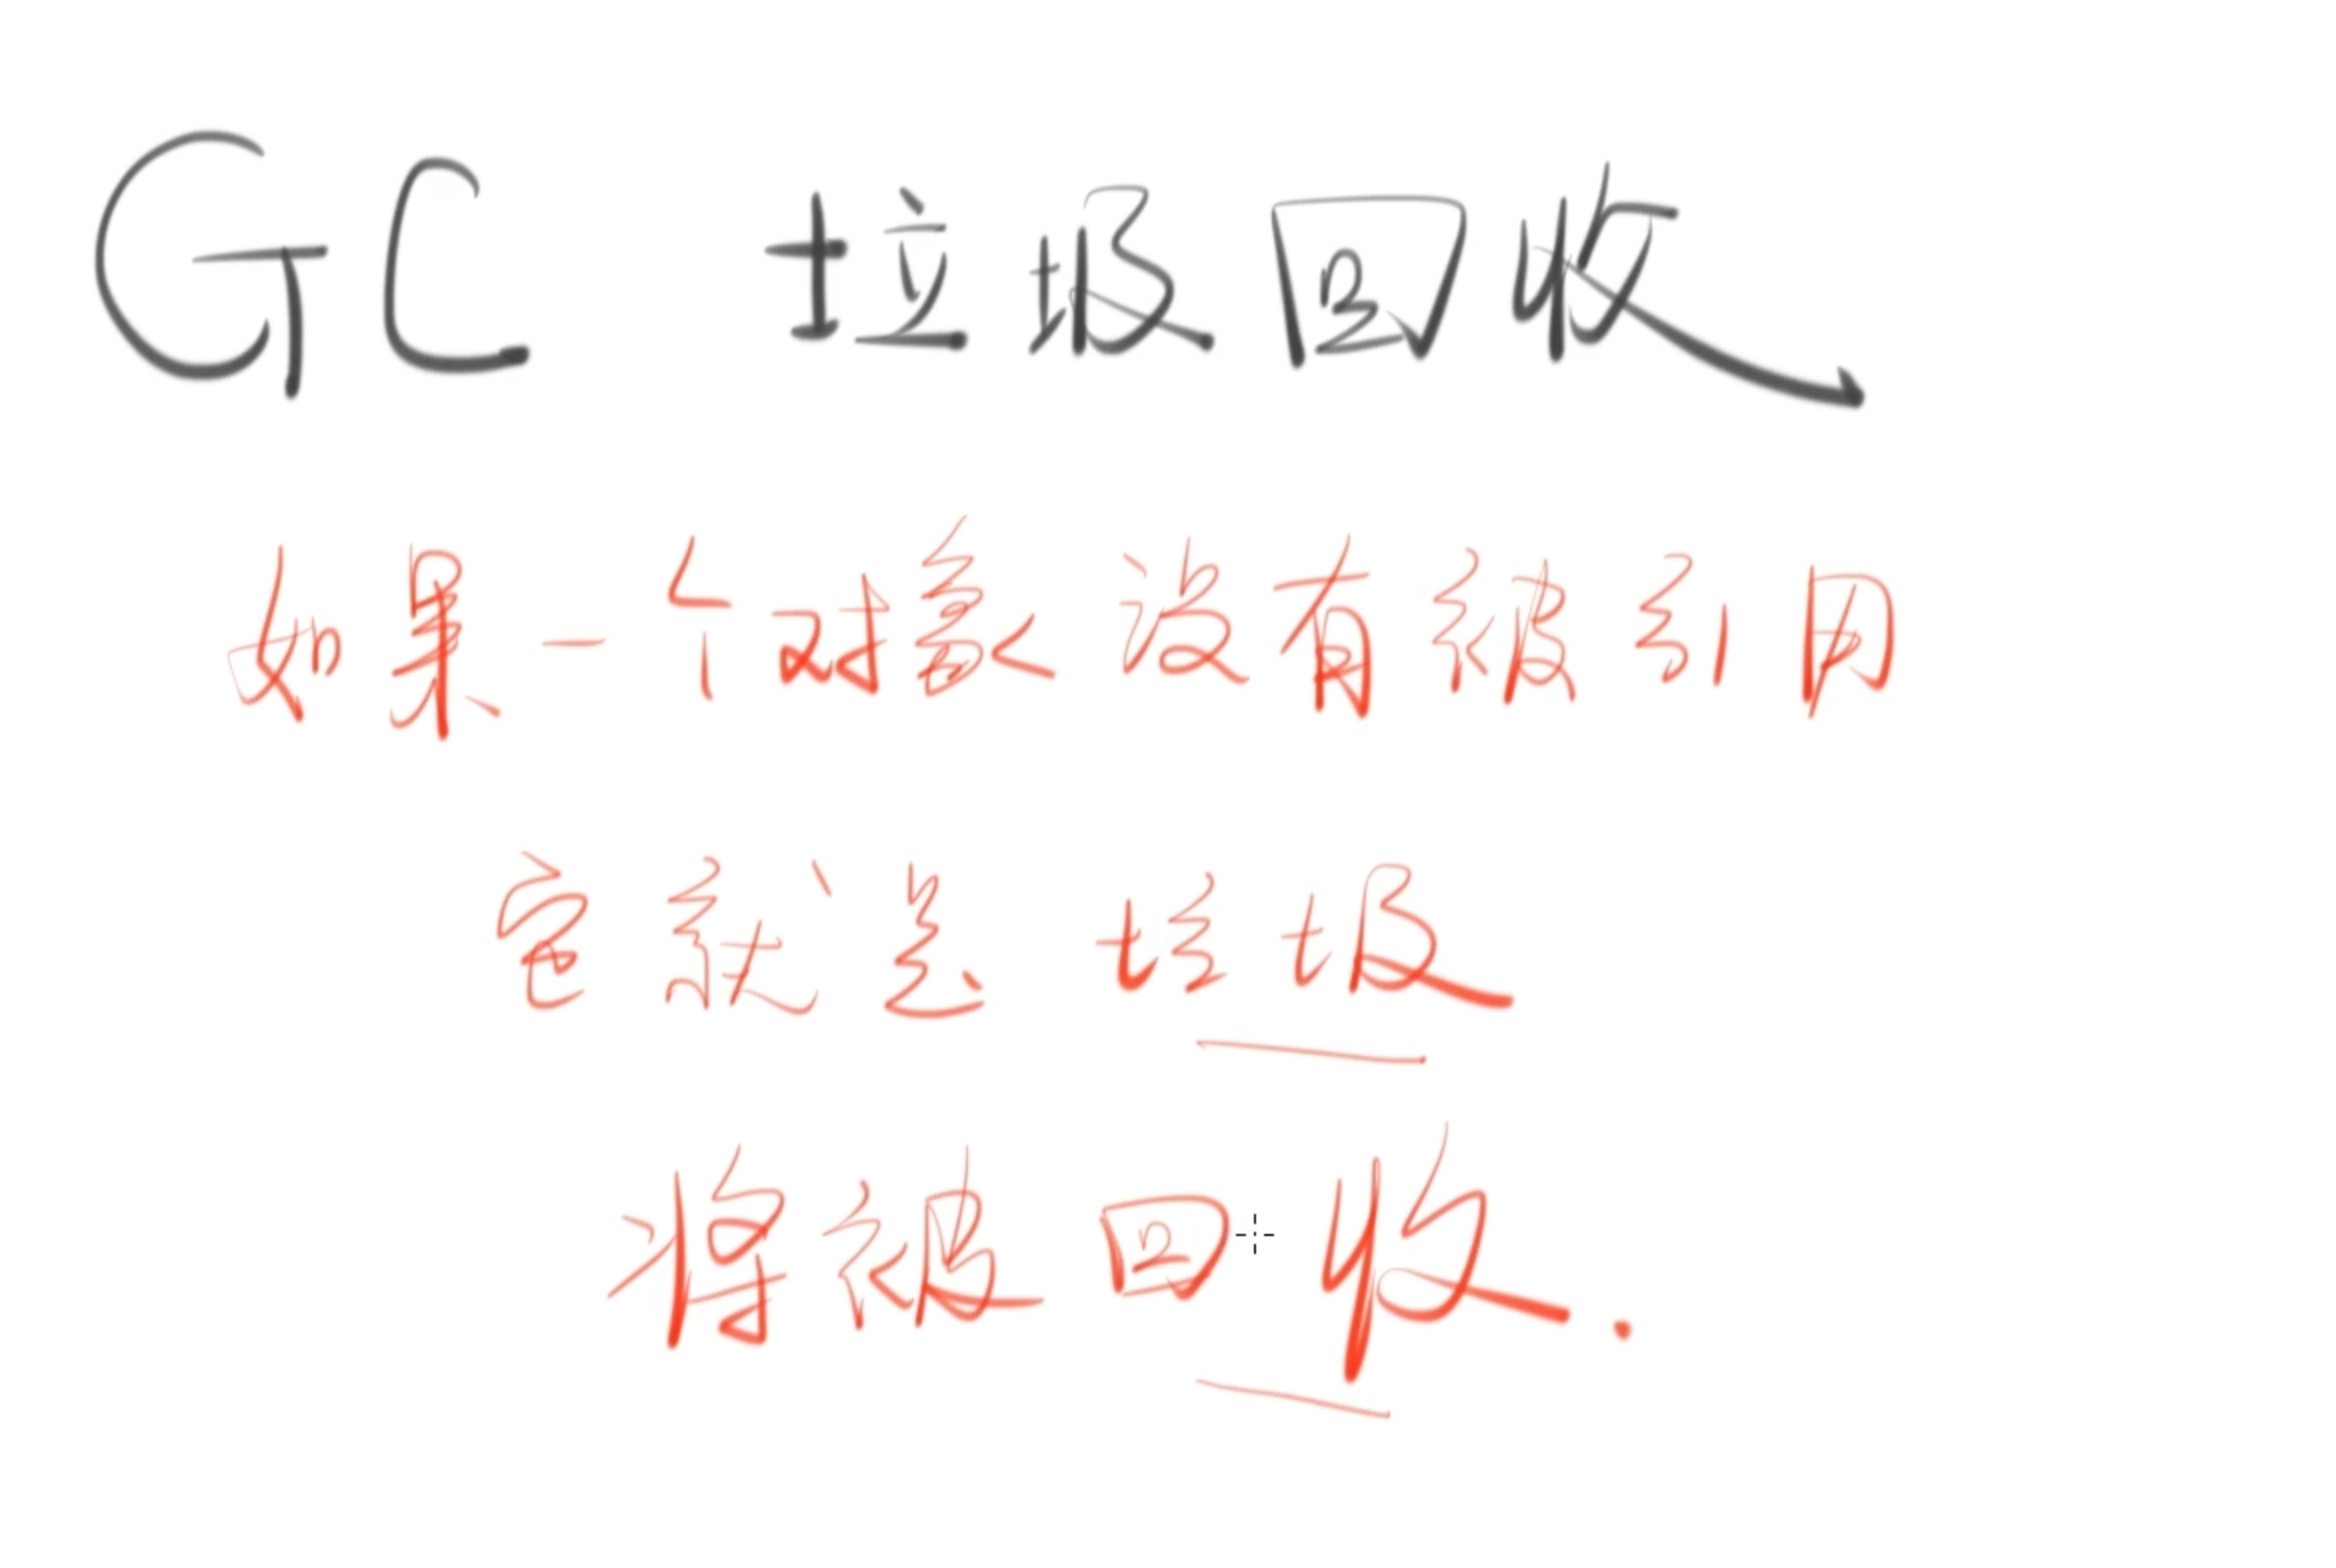 GC 垃圾回收
如果一个对象没有被引用
它就是垃圾
将被回收.